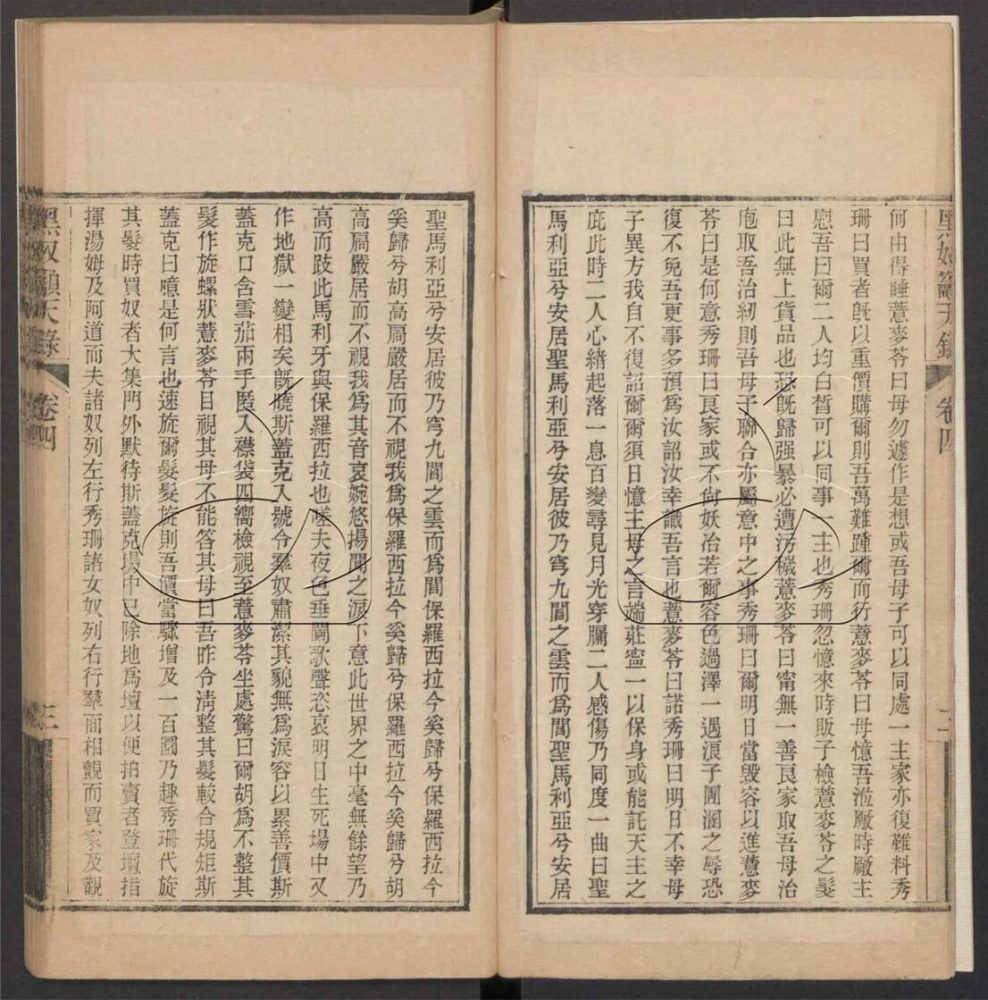 黑奴籲天錄 卷四 二
何由得睡薏麥苓曰母勿遽作是想或吾母子可以同處一主家亦復難料秀
珊曰買者旣以重價購爾則吾萬難踵爾而行薏麥苓曰母憶吾涖厰時厰主
慰吾曰爾二人均白皙可以同事一主也秀珊忽憶來時販子檢薏麥苓之髮
曰此無上貨品也恐旣歸强暴必遭汚穢薏麥苓曰甯無一善良家取吾母治
庖取吾治紉則吾母子聯合亦屬意中之事秀珊曰爾明日當毀容以進薏麥
苓曰是何意秀珊曰良家或不尙妖冶若爾容色過澤一遇浪子圊溷之辱恐
復不免吾更事多預爲汝詔汝幸識吾言也薏麥苓曰諾秀珊曰明日不幸母
子異方我自不復詔爾爾須日憶主母之言端莊甯一以保身或能託天主之
庇此時二人心緒起落一息百變尋見月光穿牖二人感傷乃同度一曲曰聖
馬利亞兮安居聖馬利亞兮安居彼乃穹九閶之雲而爲閶聖馬利亞兮安居
聖馬利亞兮安居彼乃穹九閶之雲而爲閶保羅西拉今奚歸兮保羅西拉今
奚歸兮胡高扃嚴居而不視我爲保羅西拉今奚歸兮保羅西拉今奚歸兮胡
高扃嚴居而不視我爲其音哀婉悠揚聞之淚下意此世界之中毫無餘望乃
高而跂此馬利牙與保羅西拉也嗟夫夜色垂闌歌聲恣哀明日生死場中又
作地獄一變相矣旣曉斯蓋克入號令羣奴肅潔其貌無爲淚容以累善價斯
蓋克口含雪茄兩手陷入襟袋四嚮檢視至薏麥苓坐處驚曰爾胡爲不整其
髮作旋螺狀薏麥苓目視其母不能答其母曰吾昨令淸整其髮較合規矩斯
蓋克曰噫是何言也速旋爾髮髮旋則吾價當驟增及一百圓乃趣秀珊代旋
其髮時買奴者大集門外默待斯蓋克場中已除地爲壇以便拍賣者登壇指
揮湯姆及阿道而夫諸奴列左行秀珊諸女奴列右行羣面相覿而買家及觀
黑奴籲天錄 卷四 三